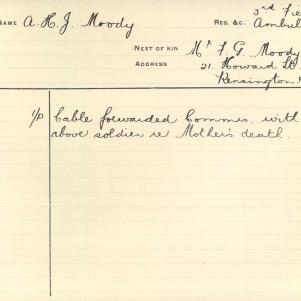 NAME A. H. J. Moody
REG. &C. 3rd Fie
Ambul
NEXT OF KIN Mr F. G. Moody
ADDRESS 21. Howard St
Kensington
Cable forwarded Commns. with
above soldier re Mother's death.